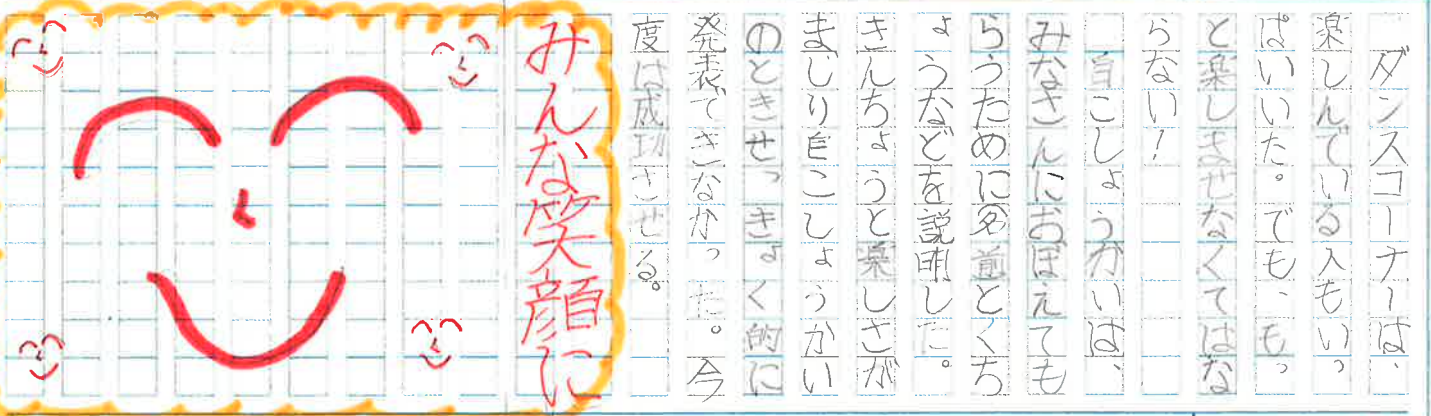 ダンスコーナーは、
楽しんでいる人もいっ
ぱいいた。でも、もっ
と楽しませなくてはな
らない!
自こしょうかいは、
みなさんにおぼえても
らうために名前とくち
ょうなどを説明した。
きんちょうと楽しさが
まじり自こしょうかい
のときせっきょく的に
発表できなかった。今
度は成功させる。
みんな笑顔に